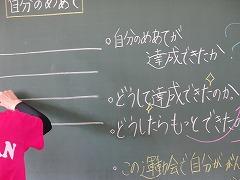 自分のめあて
・自分のめあてが
達成できたか?
・どうして達成できたのか。
・どうしたらもっとできたか
・この運動会で自分が
AN